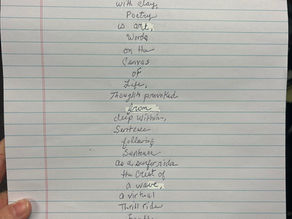 with clay,
Poetry
is art,
Words
on the
Canvas
of
Life,
Thoughts provoked
from
deep within,
Sentence
following
Sentence
as a surfer rides
the Crest of
a wave,
a virtual
Thrill ride